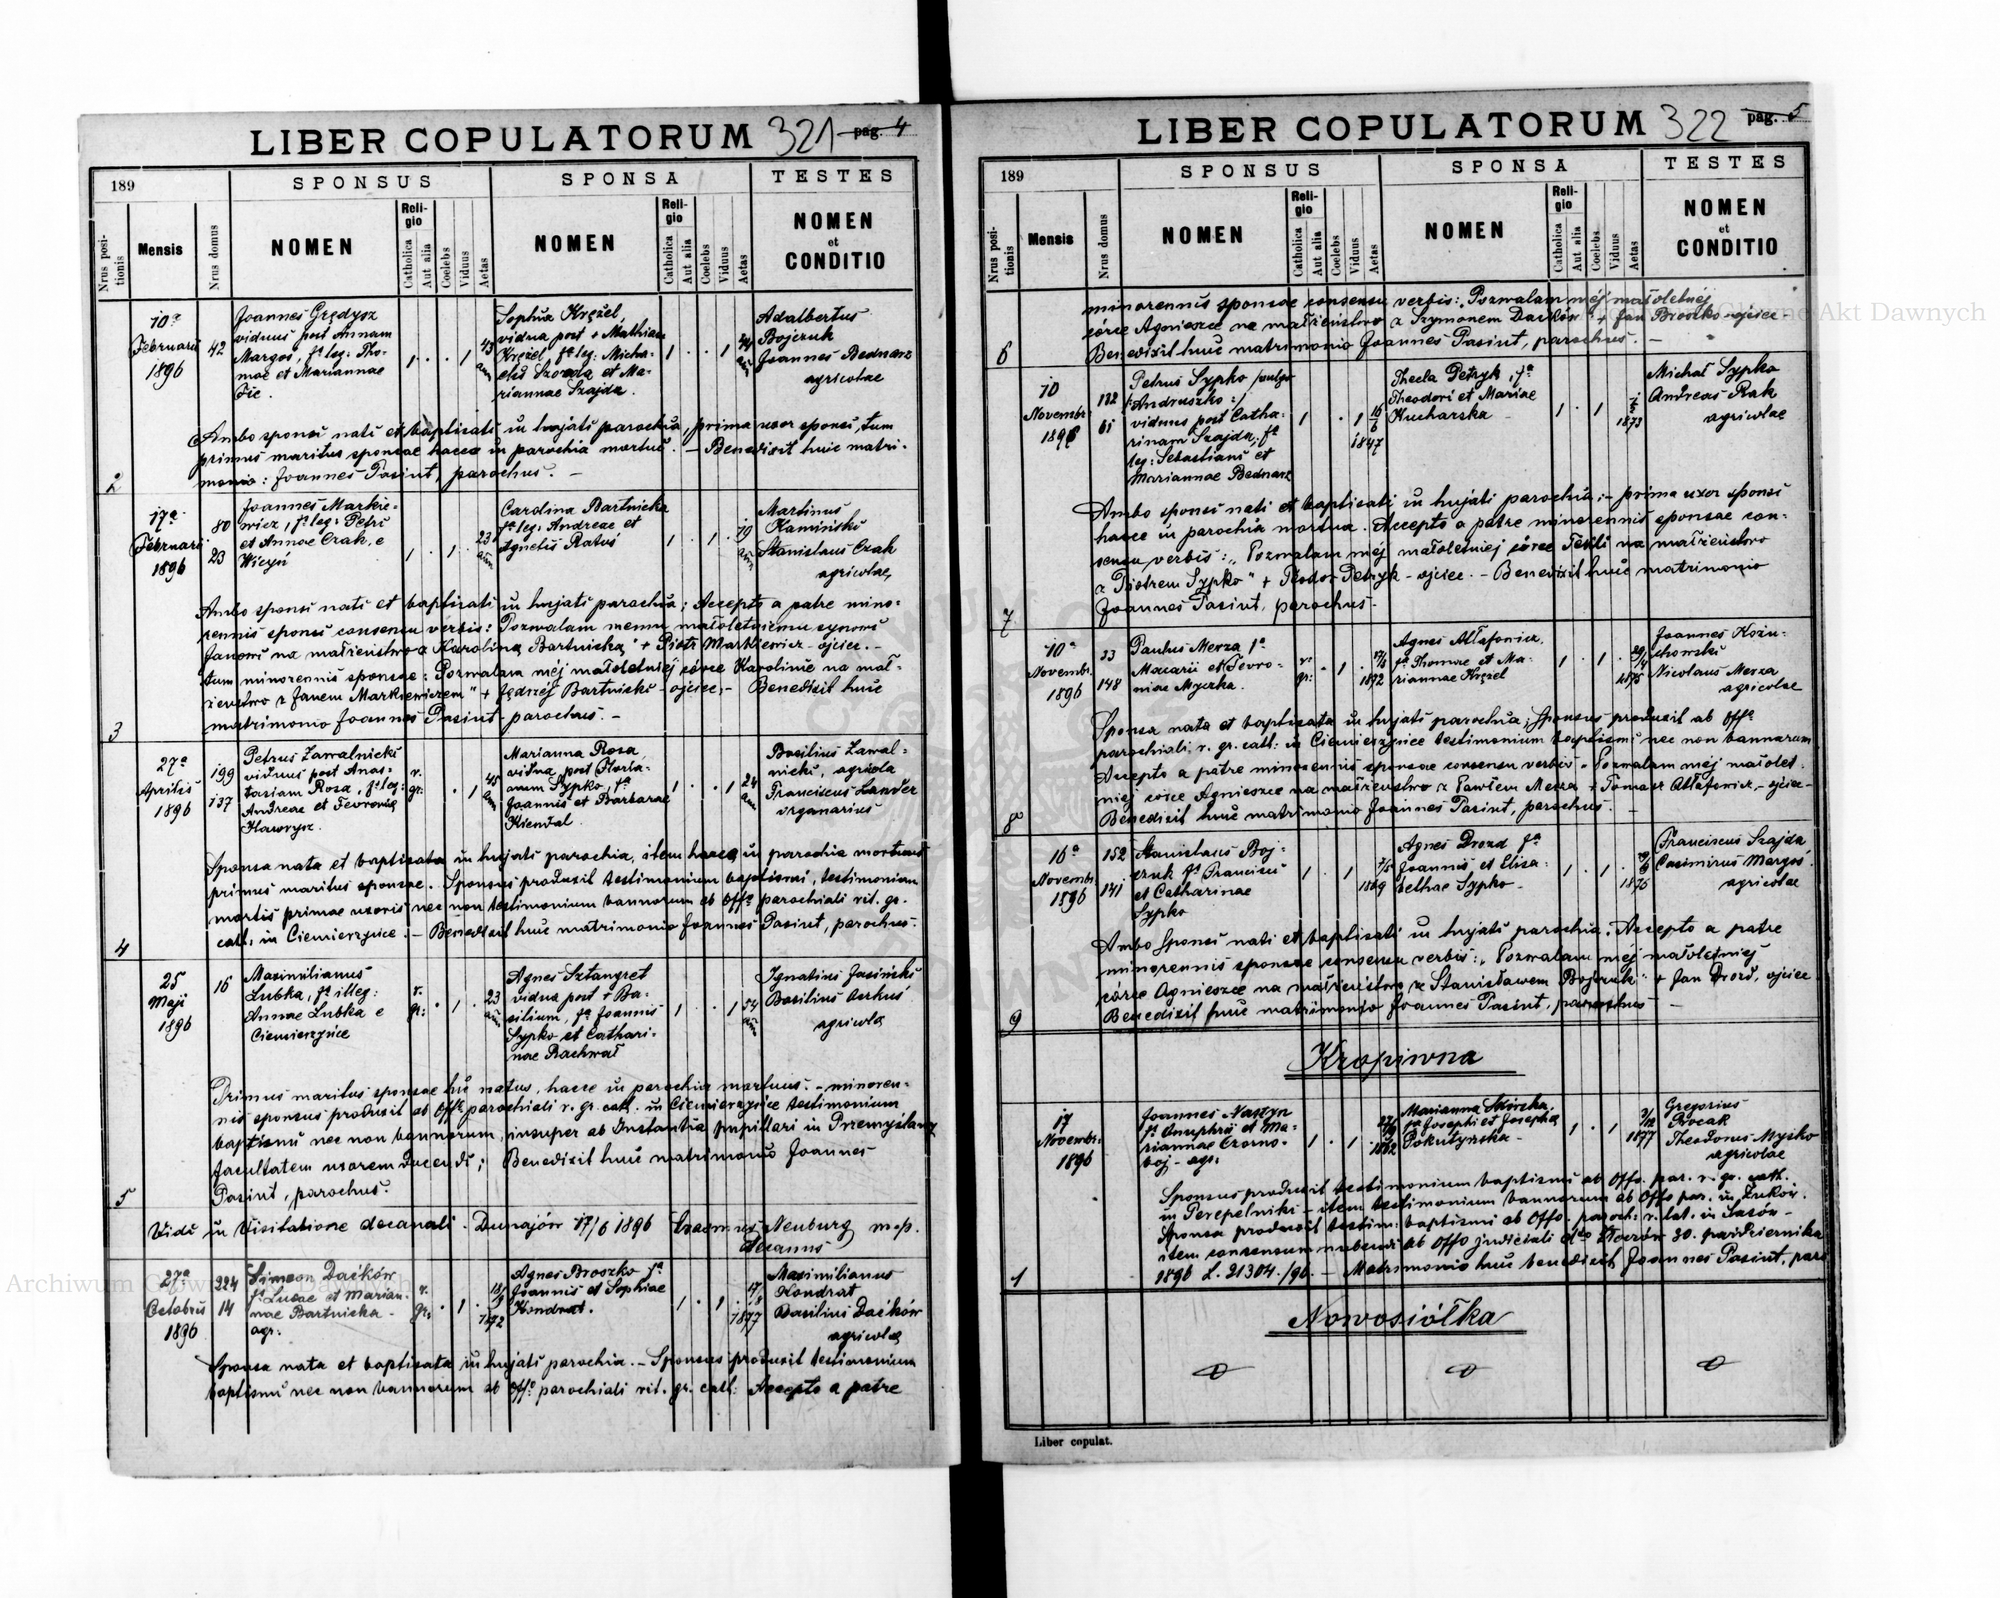 LIBER COPULATORUM 321 pag. 4
189
SPONSUS
SPONSA
TESTES
Nrus positionis
Mensis
Nrus domus
NOMEN
Religio
Catholica
Aut alia
Coelebs
Viduus
Aetas
NOMEN
Religio
Catholica
Aut alia
Coelebs
Viduus
Aetas
NOMEN
et
CONDITIO
10ª
Februarii
1896
42
Joannes Grędysz
viduus post Annam
Margoś, fs leg: Tho-
mae et Mariannae
1 . . 1 43 ann
Sophia Krężel,
vidua post + Mathiam
Krężel, fa leg: Micha-
elis Szozda et Ma-
riannae Szajda.
1 . . 1 44 ann
Adalbertus
Bojczuk
Joannes Bednarz
agricolae
Ambo sponsi nati et baptisati in hujati parochia, prima uxor sponsi, tum
primus maritus sponsae hacce in parochia mortui. — Benedixit huic matri-
monio: Joannes Pasiut, parochus. —
2
17ª
Februarii
1896
80
23
Joannes Markie-
wicz, fs leg: Petri
et Annae Czak, e
Wicyń
1 . 1 . 23 ann
Carolina Bartnicka
fa leg: Andreae et
Agnetis Ratuś
1 . 1 . 19 ann
Martinus
Kamiński
Stanislaus Czak
agricolae,
Ambo sponsi nati et baptisati in hujati parochia; Accepto a patre mino-
rennis sponsi consensu verbis: Pozwalam memu małoletniemu synowi
Janowi na małżeństwo z Karoliną Bartnicką" + Piotr Markiewicz - ojciec. -
tum minorennis sponsae: Pozwalam mej małoletniej córce Karolinie na mał-
żeństwo z Janem Markiewiczem" + Jędrzej Bartnicki - ojciec; - Benedixit huic
matrimonio Joannes Pasiut - parochus. -
3
27ª
Aprilis
1896
199
137
Petrus Zawalnicki
viduus post Anas-
tasiam Rosa, fs leg:
Andreae et Fevronia
Hawrysz.
r. gr. . 1 45 ann
Marianna Rosa
vidua post Floria-
num Sypko, fa
Joannis et Barbarae
Kiendal.
1 . . 1 24 ann
Basilius Zawal-
nicki, agricola
Franciscus Lander
organarius
Sponsa nata et baptisata in hujati parochia, item hacce in parochia mortuus
primus maritus sponsae. Sponsus produxit testimonium baptismi, testimonium
mortis primae uxoris nec non testimonium bannorum ab Offo parochiali rit. gr.
cath. in Ciemierzyńce. — Benedixit huic matrimonio Joannes Pasiut, parochus.
4
25
Maji
1896
16
Maximilianus
Lubka, fs illeg:
Annae Lubka e
Ciemierzyńce
r. gr: . 1 . 23 ann
Agnes Sztangret
vidua post + Ba-
silium, fa Joannis
Sypko et Cathari-
nae Rachwał
1 . . 1 34 ann
Ignatius Jasiński
Basilius
agricola
Primus maritus sponsae hic natus, hacce in parochia mortuus. - minoren-
nis sponsus produxit ab Offo parochiali r. gr. cath. in Ciemierzyńce testimonium
baptismi nec non bannorum, insuper ab Instantia pupillari in Przemyślany
facultatem uxorem ducendi; Benedixit huic matrimonio Joannes
Pasiut, parochus.
5
Vidi in Visitatione decanali. Dunajów 17/6 1896 Erasmus Neuburg m.p.
decanus
27ª
Octobris
1896
224
14
Simeon Daćków
fs Lucae et Marian-
nae Bartnicka -
agr:
r. gr. . 1 . 18/9 1872
Agnes Broszko fa
Joannis et Sophiae
Kondrat.
1 . 1 . 17/8 1877
Maximilianus
Kondrat
Basilius Daćków
agricolae
Sponsa nata et baptisata in hujati parochia. - Sponsus produxit testimonium
baptismi nec non bannorum ab Offo parochiali rit. gr. cath: Accepto a patre
LIBER COPULATORUM 322 pag. 5
189
SPONSUS
SPONSA
TESTES
Nrus positionis
Mensis
Nrus domus
NOMEN
Religio
Catholica
Aut alia
Coelebs
Viduus
Aetas
NOMEN
Religio
Catholica
Aut alia
Coelebs
Viduus
Aetas
NOMEN
et
CONDITIO
minorennis sponsae consensu verbis: „Pozwalam mej małoletniej
córce Agnieszce na małżeństwo z Szymonem Daćków" + Jan Broszko - ojciec -
Benedixit huic matrimonio Joannes Pasiut, parochus. —
6
10
Novembr.
1896
132
61
Petrus Sypko /vulgo
Andruszko:/
viduus post Catha-
rinam Szajda; fs
leg: Sebastiani et
Mariannae Bednarz
1 . 1 16/6 1847
Thecla Petryk, fa
Theodori et Mariae
Kucharska
1 . 1 . 1873
Michał Sypko
Andreas Rak
agricolae
Ambo sponsi nati et baptisati in hujati parochia; - prima uxor sponsi
hacce in parochia mortua. Accepto a patre minorennis sponsae con-
sensu verbis: „Pozwalam mej małoletniej córce Tekli na małżeństwo
z Piotrem Sypko" + Teodor Petryk - ojciec. - Benedixit huic matrimonio
Joannes Pasiut, parochus.
7
10ª
Novembr.
1896
33
148
Paulus Merza fs
Macarii et Fevro-
niae Myczka.
r. gr: . 1 . 17/6 1872
Agnes Ałłafowicz,
fa Thomae et Ma-
riannae Krężel
1 . 1 . 29/4 1875
Joannes Kożu-
chowski
Nicolaus Merza
agricolae
Sponsa nata et baptisata in hujati parochia; Sponsus produxit ab Offo
parochiali r. gr. cath: in Ciemierzyńce testimonium baptismi nec non bannorum
Accepto a patre minorennis sponsae consensu verbis „Pozwalam mej małolet-
niej córce Agnieszce na małżeństwo z Pawłem Merza + Tomasz Ałłafowicz, - ojciec -
Benedixit huic matrimonio Joannes Pasiut, parochus.
8
16ª
Novembr.
1896
152
141
Stanislaus Boj-
czuk fs Francisci
et Catharinae
Sypko
1 . 1 . 7/5 1869
Agnes Drozd fa
Joannis et Elisa-
bethae Sypko -
1 . 1 . 1875
Franciscus Szajda,
Casimirus Margoś
agricolae
Ambo Sponsi nati et baptisati in hujati parochia. Accepto a patre
minorennis sponsae consensu verbis: „Pozwalam mej małoletniej
córce Agnieszce na małżeństwo ze Stanisławem Bojczuk" + Jan Drozd, ojciec
Benedixit huic matrimonio Joannes Pasiut, parochus —
9
Kropiwna
17
Novembr.
1896
Joannes Naszyn
fs Onuphrii et Ma-
riannae Czorno-
boj - agr:
1 . 1 .
Marianna Skórska
fa Josephi et Josepha
Pokutyńska -
1 . 1 . 1877
Gregorius
Procak
Theodorus Myśko
agricolae
Sponsus produxit testimonium baptismi ab Offo. par. r. gr. cath.
in Perepelniki - item testimonium bannorum ab Offo par. in Żuków.
Sponsa produxit testim: baptismi ab Offo. paroch: r. lat. in Sasów -
item consensum nubendi ab Offo judiciali dto Złoczów 30. października
1896 L. 21304./96. - Matrimonio huic benedixit Joannes Pasiut, par:
1
Nowosiółka
Liber copulat.
Archiwum Główne Akt Dawnych
Archiwum Główne Akt Dawnych